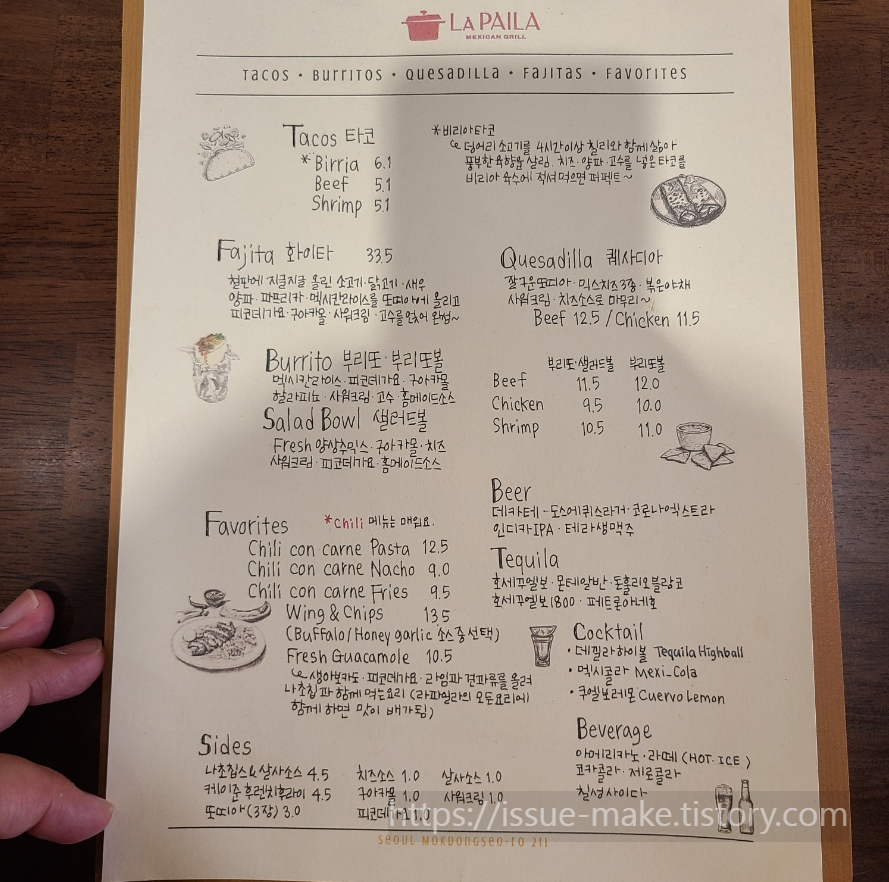 LA PAILA
MEXICAN GRILL
TACOS • BURRITOS • QUESADILLA • FAJITAS • FAVORITES
Tacos 타코
*Birria 6.1
Beef 5.1
Shrimp 5.1
*비리아타코
덩어리 소고기를 4시간이상 칠리와 함께 삶아
풍부한 육향을 살림. 치즈·양파·고수를 넣은타코를
비리아 육수에 적셔먹으면 퍼펙트~
Fajita 화이타 33.5
철판에 지글지글 올린 소고기·닭고기·새우
양파·파프리카·멕시칸라이스를 또띠아에 올리고
피코데가요·구아카몰·사워크림·고수를 얹어 완성~
Quesadilla 퀘사디아
잘구운또띠아·믹스치즈3종·볶은야채
사워크림·치즈소스로 마무리~
Beef 12.5 / Chicken 11.5
Burrito 부리또·부리또볼
멕시칸라이스·피코데가요·구아카몰
할라피뇨·사워크림·고수·홈메이드소스
Salad Bowl 샐러드볼
Fresh 양상추믹스·구아카몰·치즈
사워크림·피코데가요·홈메이드소스
부리또·샐러드볼 부리또볼
Beef 11.5 12.0
Chicken 9.5 10.0
Shrimp 10.5 11.0
Favorites *Chili 메뉴는 매워요.
Chili con carne Pasta 12.5
Chili con carne Nacho 9.0
Chili con carne Fries 9.5
Wing & Chips 13.5
(Buffalo/Honey garlic 소스중선택)
Fresh Guacamole 10.5
생아보카도·피코데가요·라임과 견과류를 올려
나초칩과 함께 먹는요리 (라파일라의 모든요리에
함께 하면 맛이 배가됨)
Beer
데카테·도스에퀴스라거·코로나엑스트라
인디카IPA·테라생맥주
Tequila
호세쿠엘보·몬테알반·돈훌리오블랑코
호세쿠엘보1800·페트론아네호
Cocktail
• 데낄라하이볼 Tequila Highball
• 멕시콜라 Mexi-Cola
• 쿠엘보레몬 Cuervo Lemon
Beverage
아메리카노·라떼 (HOT·ICE)
코카콜라·제로콜라
칠성사이다
Sides
나초칩스&살사소스 4.5 치즈소스 1.0 살사소스 1.0
케이준후렌치후라이 4.5 구아카몰 1.0 사워크림 1.0
또띠아(3장) 3.0 피코데 1.0
https://issue-make.tistory.com
SEOUL MOKDONGSEO-RO 211